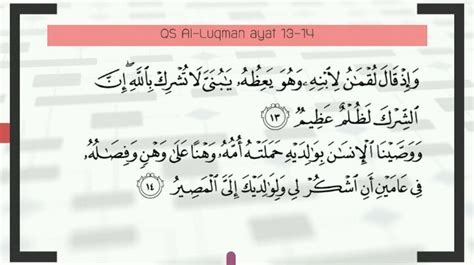 QS Al-Luqman ayat 13-14
وَإِذْ قَالَ لُقْمَٰنُ لِٱبْنِهِۦ وَهُوَ يَعِظُهُۥ يَٰبُنَىَّ لَا تُشْرِكْ بِٱللَّهِ ۖ إِنَّ
ٱلشِّرْكَ لَظُلْمٌ عَظِيمٌ ١٣
وَوَصَّيْنَا ٱلْإِنسَٰنَ بِوَٰلِدَيْهِ حَمَلَتْهُ أُمُّهُۥ وَهْنًا عَلَىٰ وَهْنٍ وَفِصَٰلُهُۥ
فِى عَامَيْنِ أَنِ ٱشْكُرْ لِى وَلِوَٰلِدَيْكَ إِلَىَّ ٱلْمَصِيرُ ١٤